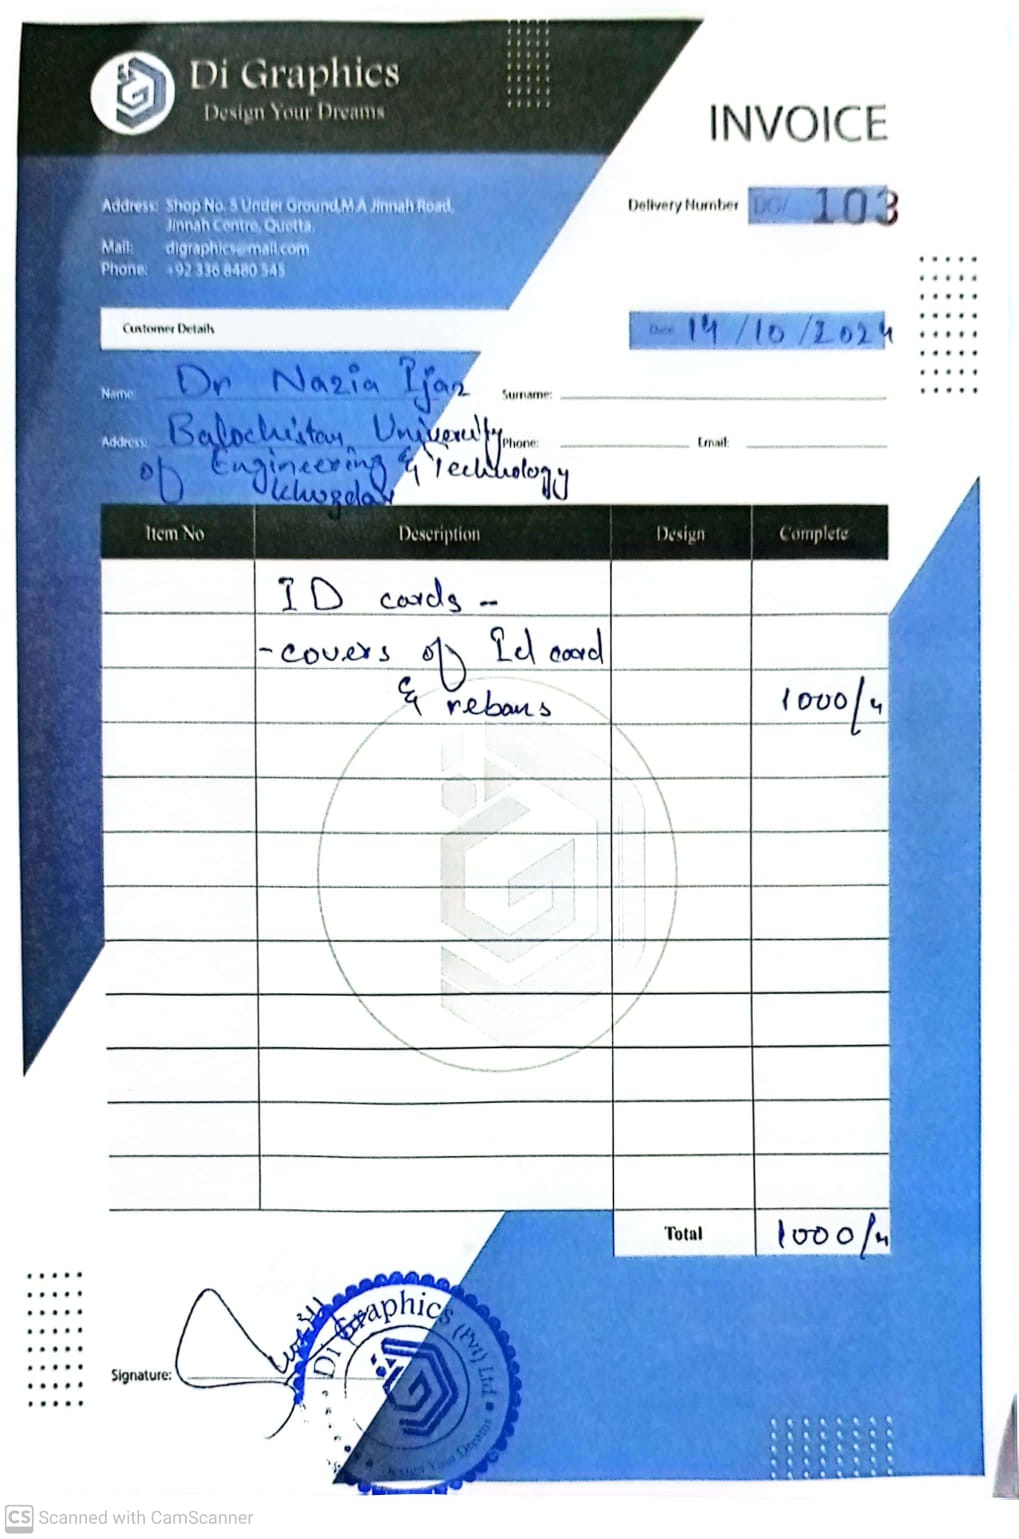 Di Graphics
Design Your Dreams
INVOICE
Address: Shop No. 5 Under Ground,M.A Jinnah Road,
Jinnah Centre, Quetta.
Mail: digraphics@mail.com
Phone: +92 336 8480 545
Delivery Number DG/ 103
Customer Details
Date 14/10/2024
Name: Dr Nazia Ijaz
Surname:
Address: Balochistan University
of Engineering & Technology
Khuzdar
Phone:
Email:
Item No Description Design Complete
ID cards -
- covers of Id card
& rebans 1000/
Total 1000/
Signature:
Di Graphics (Pvt) Ltd.
Design Your Dreams
CS Scanned with CamScanner